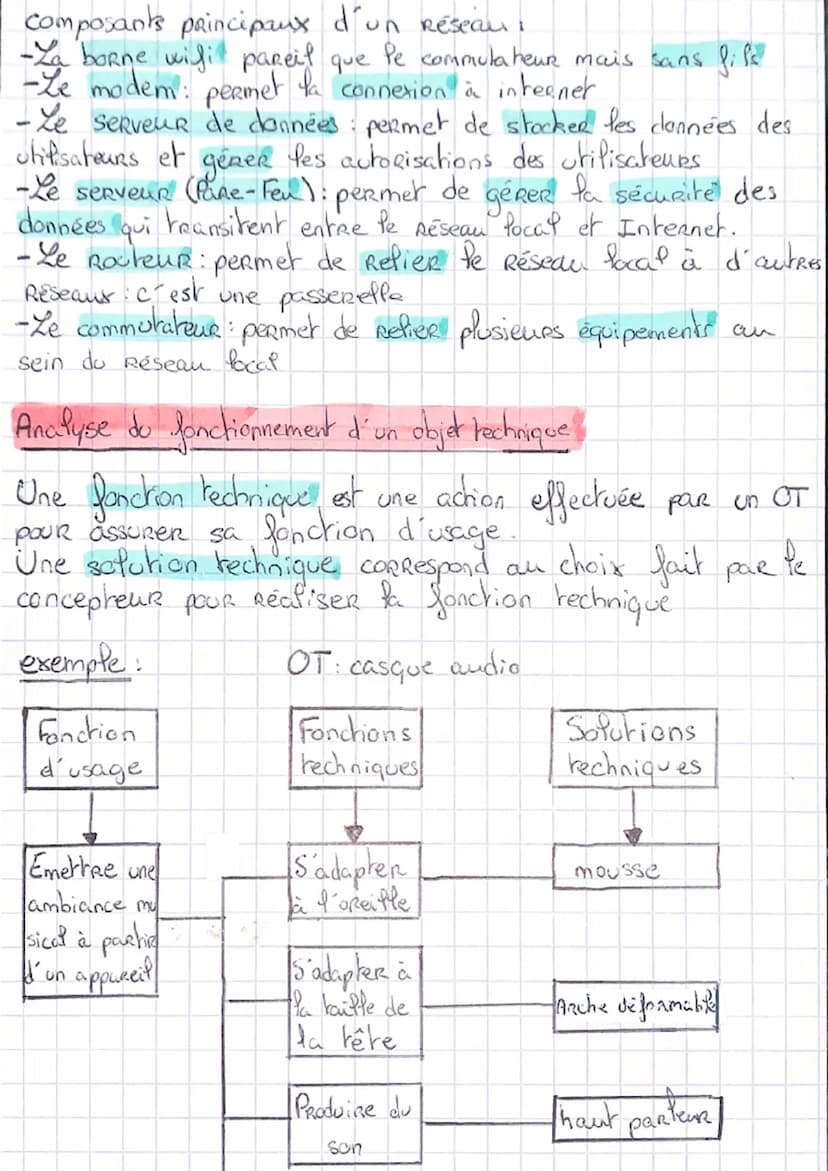 composants principaux d'un réseau :
-La borne wifi pareil que le commutateur mais sans fils
-Le modem : permet la connexion à internet
-Le serveur de données : permet de stocker les données des
utilisateurs et gérer les autorisations des utilisateurs
-Le serveur (Pare-Feu) : permet de gérer la sécurité des
données qui transitent entre le réseau local et Internet.
-Le routeur : permet de relier le réseau local à d'autres
réseaux : c'est une passerelle
-Le commutateur : permet de relier plusieurs équipements au
sein du réseau local
Analyse du fonctionnement d'un objet technique
Une fonction technique est une action effectuée par un OT
pour assurer sa fonction d'usage.
Une solution technique correspond au choix fait par le
concepteur pour réaliser la fonction technique
exemple : OT : casque audio
Fonction
d'usage
Fonctions
techniques
Solutions
techniques
Emettre une
ambiance mu
sical à partir
d'un appareil
S'adapter
à l'oreille
mousse
S'adapter à
la taille de
la tête
Arche déformable
Produire du
son
haut parleur